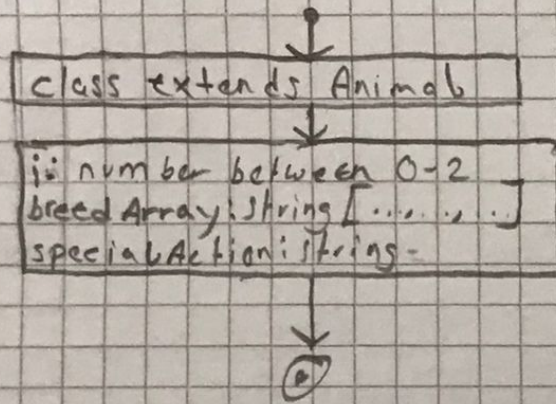 class extends Animal
i: number between 0-2
breedArray: string [..., ., ..]
specialAction: string